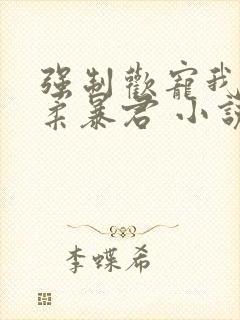 强制歡寵我
柔暴君 小說
李蝶希